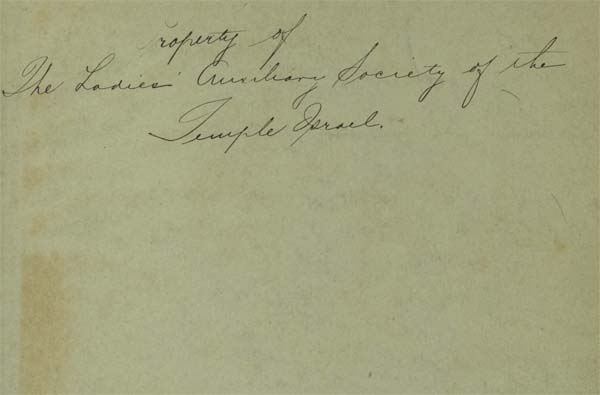 Property of
The Ladies' Auxiliary Society of the
Temple Israel.